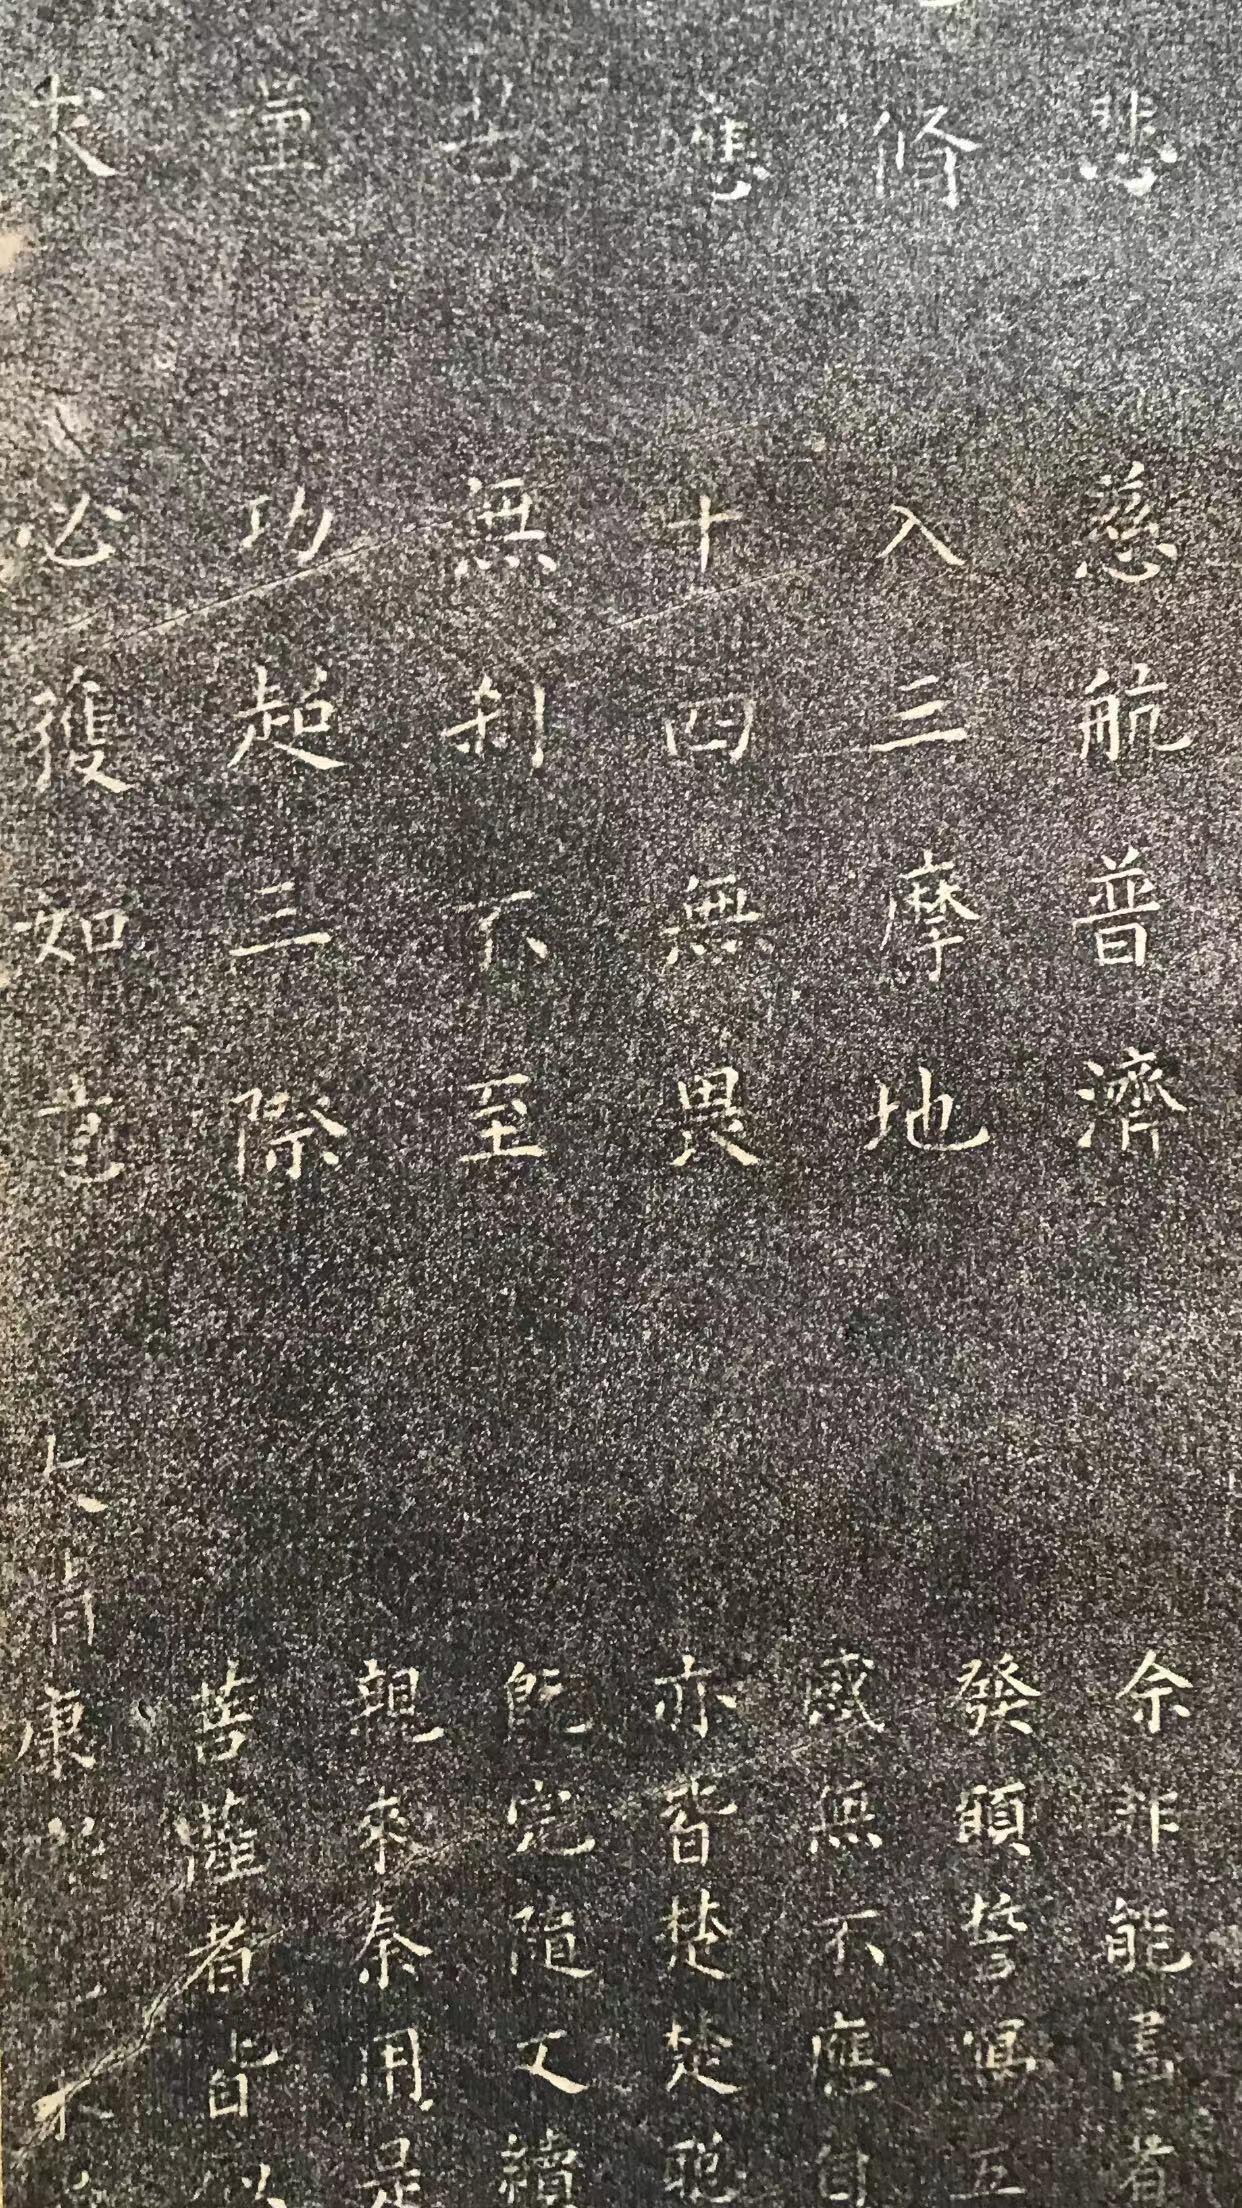 悲
慈航普濟
修
入三摩地
應
十四無畏
無剎不至
功超三際
求
必獲如意
大清康
佘非能畫者
發願誓寫五
感無不應自
亦皆楚楚
既完隨又續
親來秦用是
菩薩者皆以